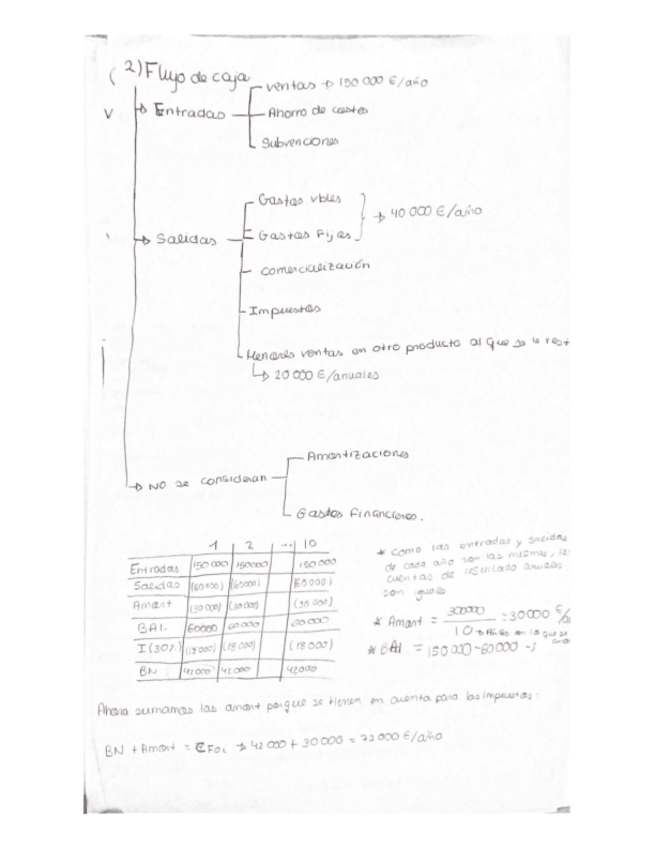 2) Flujo de caja
ventas → 150 000 €/año
Entradas
Ahorro de costes
Subvenciones
Gastos vbles
→ 40 000 €/año
Gastos Fijos
Salidas
comercialización
Impuestos
Menores ventas en otro producto al que se le
→ 20 000 €/anuales
Amortizaciones
→ NO se consideran
Gastos Financieros.
1 2 ... 10
Entradas 150 000 150000 150 000
Salidas (60000) (60000) (60000)
Amort (30 000) (30 000) (30 000)
BAI. 60000 60000 60000
I (30%) (18 000) (18 000) (18 000)
BN 42 000 42 000 42000
* Como las entradas y salidas
de cada año son las mismas,
cuentas de resultado anuales
son iguales
* Amort = 300000 / 10 = 30000
→ Años en lo que se
* BAI = 150 000 - 60000 -
Ahora sumamos las amort porque se tienen en cuenta para los impuestos:
BN + Amort = CFOi → 42 000 + 30 000 = 72 000 €/año